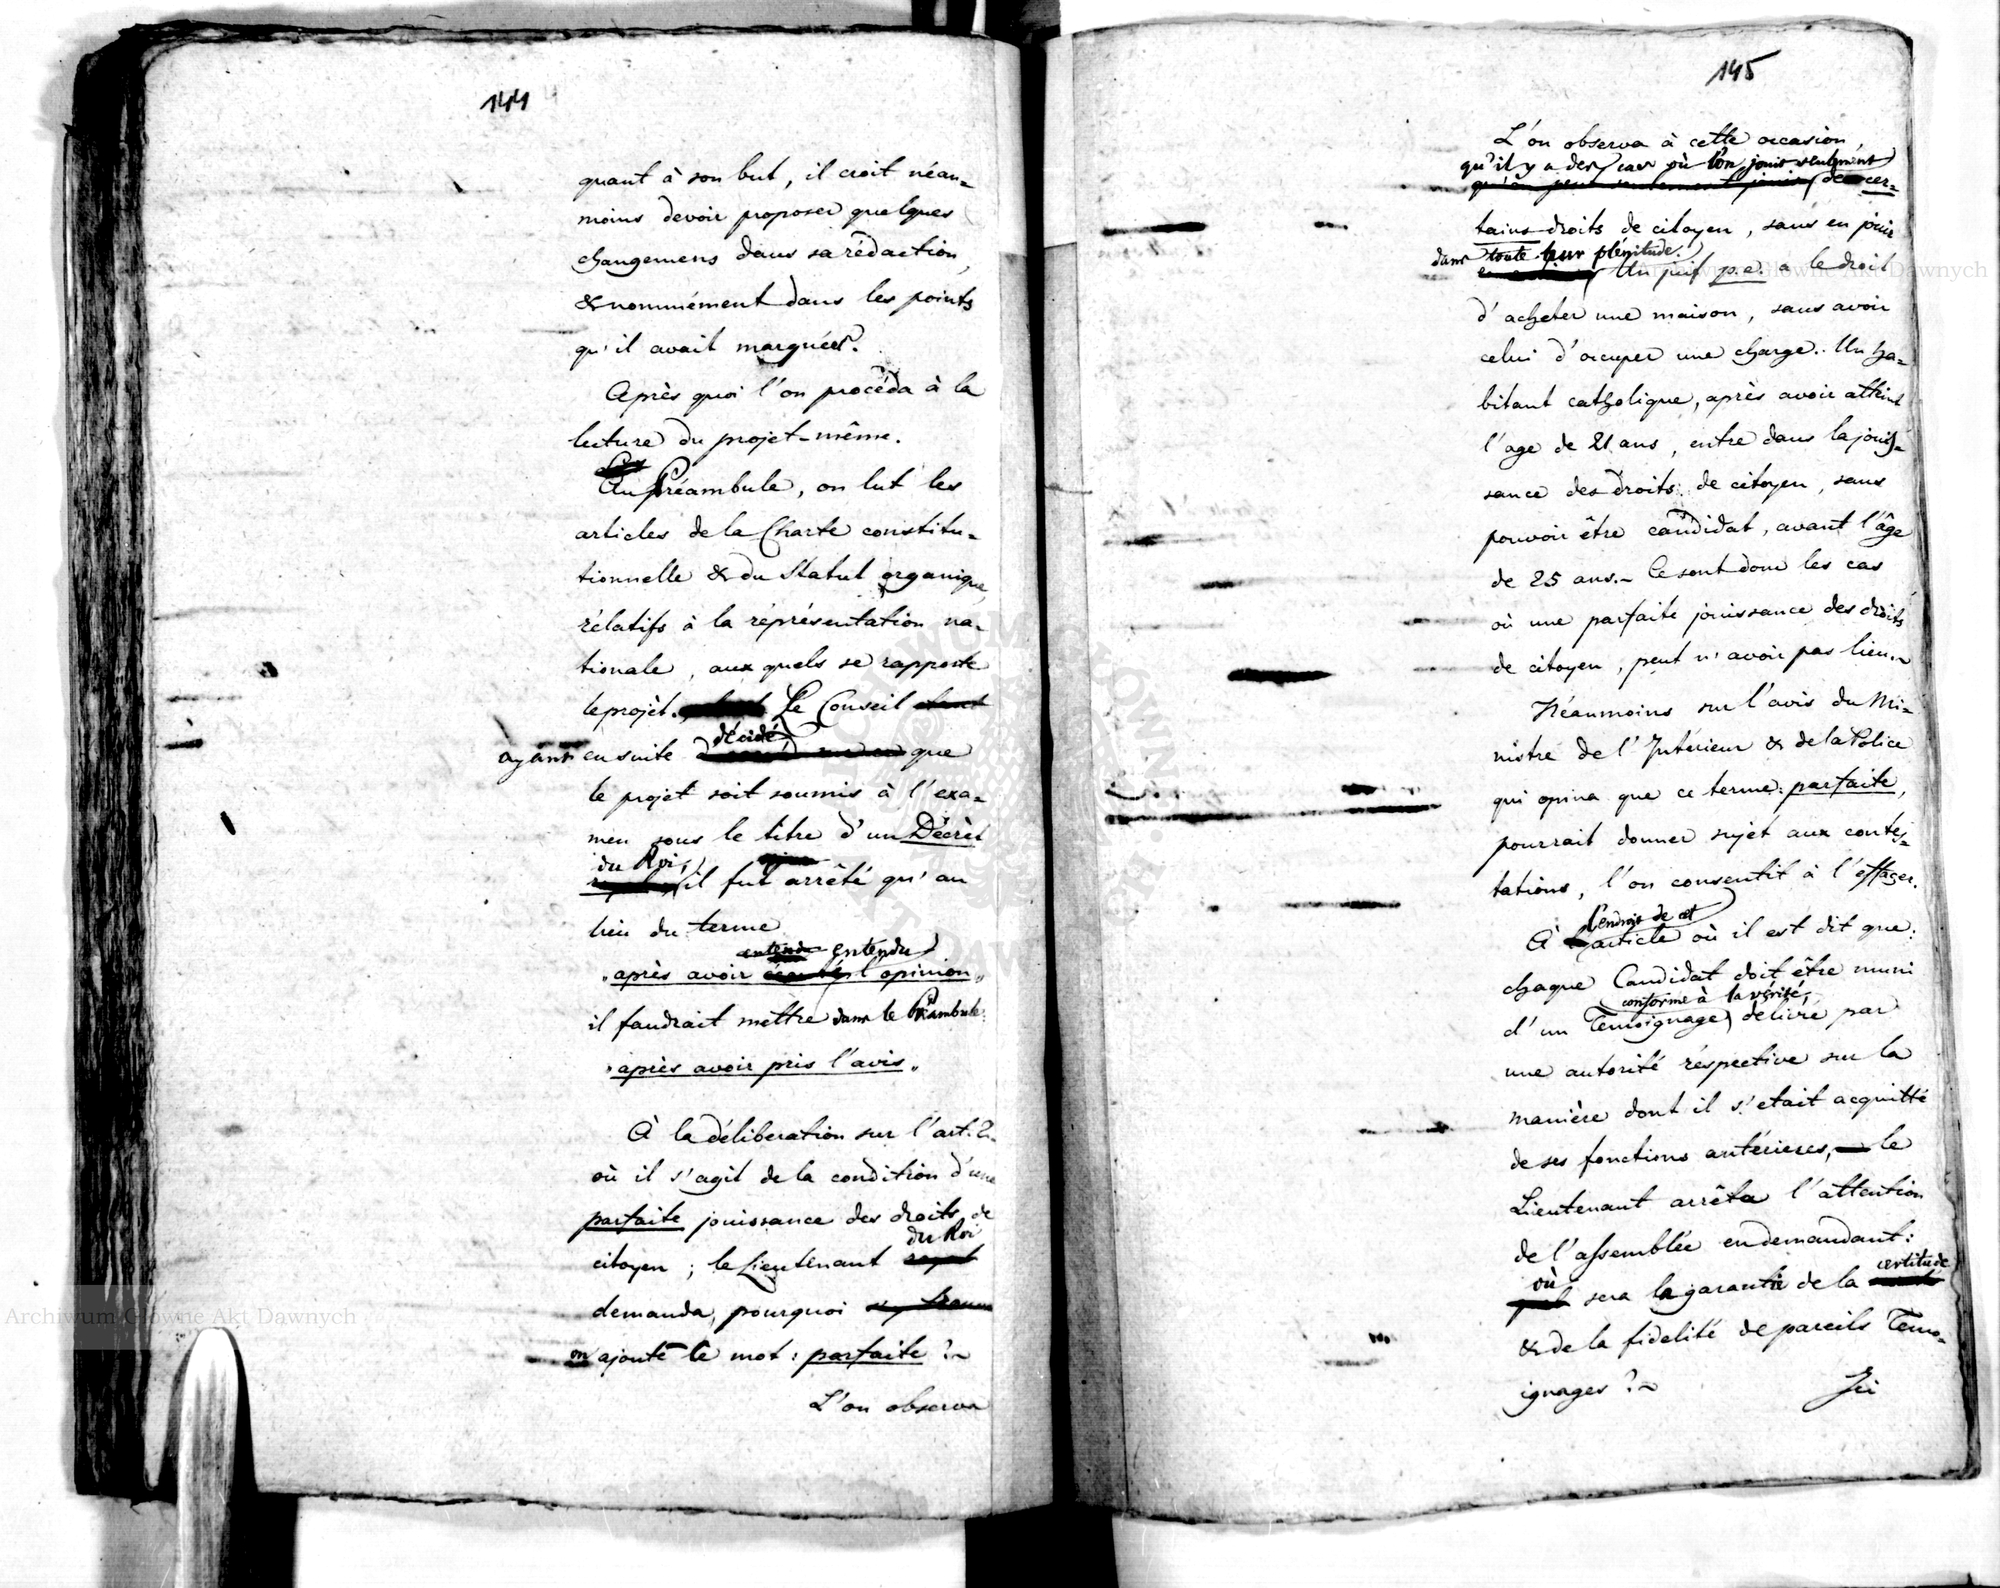 144
quant à son but, il croit néan=
moins devoir proposer quelques
changemens dans sa rédaction,
& nommément dans les points
qu'il avait marqués.
Après quoi l'on procéda à la
lecture du projet-même.
Au Préambule, on lut les
articles de la Charte constitu=
tionnelle & du Statut organique,
rélatifs à la réprésentation na=
tionale, aux quels se rapporte
le projèt. Le Conseil
décidé
ayant ensuite que
le projet soit soumis à l'exa=
men sous le titre d'un Décrèt
du Roi,
il fut arrêté qu'au
lieu du terme
entendu
"après avoir l'opinion"
il faudrait mettre dans le Préambule:
"après avoir pris l'avis"
À la déliberation sur l'art. 2.
où il s'agit de la condition d'une
parfaite jouissance des droits de
du Roi
citoyen; le Lieutenant
demanda, pourquoi
on ajouté le mot: parfaite?~
L'on observa
145
L'on observa à cette occasion,
qu'il y a des cas où l'on jouit seulement
de cer=
tains droits de citoyen, sans en jouir
dans toute leur plénitude.
Un juif p.e. a le droit
d'acheter une maison, sans avoir
celui d'occuper une charge. Un ha=
bitant catholique, après avoir atteint
l'age de 21 ans, entre dans la jouis=
sance des droits de citoyen, sans
pouvoir être candidat, avant l'âge
de 25 ans.~ Ce sont donc les cas
où une parfaite jouissance des droits
de citoyen, peut n'avoir pas lieu.~
Néanmoins sur l'avis du Mi=
nistre de l'Intérieur & de la Police
qui opina que ce terme: parfaite,
pourrait donner sujét aux contes=
tations, l'on consentit à l'effacer.
l'endroit de cet
À article où il est dit que:
chaque Candidat doit être muni
conforme à la vérité,
d'un Temoignage, délivré par
une autorité réspective sur la
manière dont il s'etait acquitté
de ses fonctions antérieures, le
Lieutenant arrêta l'attention
de l'assemblée en demandant:
où certitude
sera la garantie de la
& de la fidelité de pareils Temo=
ignages?~
Ici
Archiwum Główne Akt Dawnych
Archiwum Główne Akt Dawnych